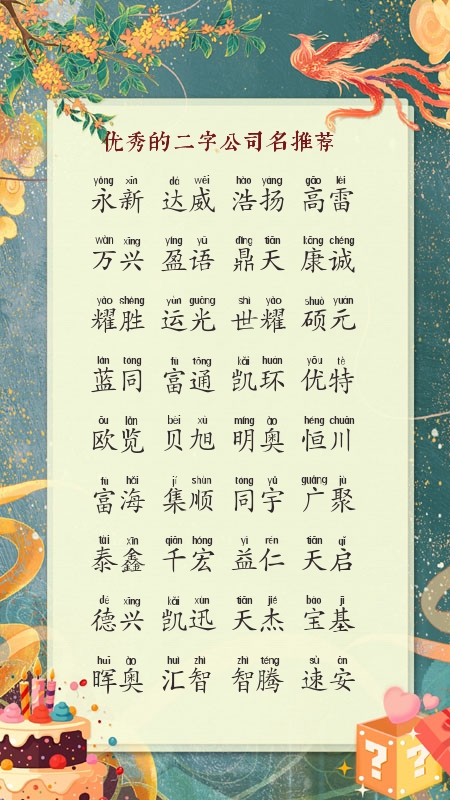 优秀的二字公司名推荐
yǒng xīn dá wēi hào yáng gāo léi
永新 达威 浩扬 高雷
wàn xīng yíng yǔ dǐng tiān kāng chéng
万兴 盈语 鼎天 康诚
yào shèng yùn guāng shì yào shuò yuán
耀胜 运光 世耀 硕元
lán tóng fù tōng kǎi huán yōu tè
蓝同 富通 凯环 优特
ōu lǎn bèi xù míng ào héng chuān
欧览 贝旭 明奥 恒川
fù hǎi jí shùn tóng yǔ guǎng jù
富海 集顺 同宇 广聚
tài xīn qiān hóng yì rén tiān qǐ
泰鑫 千宏 益仁 天启
dé xīng kǎi xùn tiān jié bǎo jī
德兴 凯迅 天杰 宝基
huī ào huì zhì zhì téng sù ān
晖奥 汇智 智腾 速安
? ?